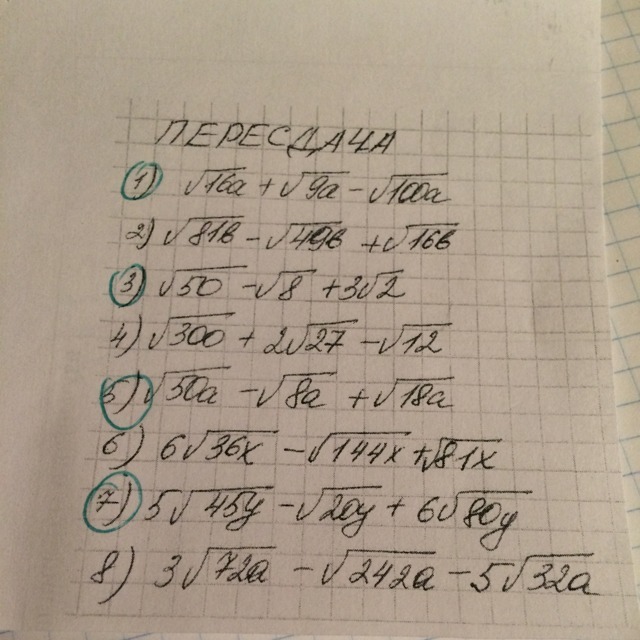 ПЕРЕСДАЧА
1) √16a + √9a - √100a
2) √81в - √49в + √16в
3) √50 - √8 + 3√2
4) √300 + 2√27 - √12
5) √50a - √8a + √18a
6) 6√36x - √144x + √81x
7) 5√45y - √20y + 6√80y
8) 3√72a - √242a - 5√32a